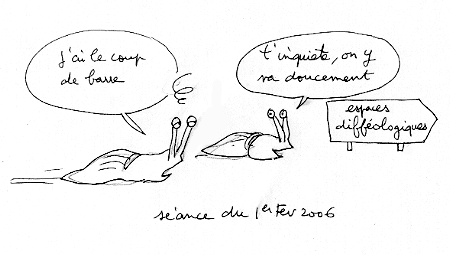 j'ai le coup
de barre
t'inquiète, on y
va doucement
espaces
difféologiques
séance du 1er Fev 2006